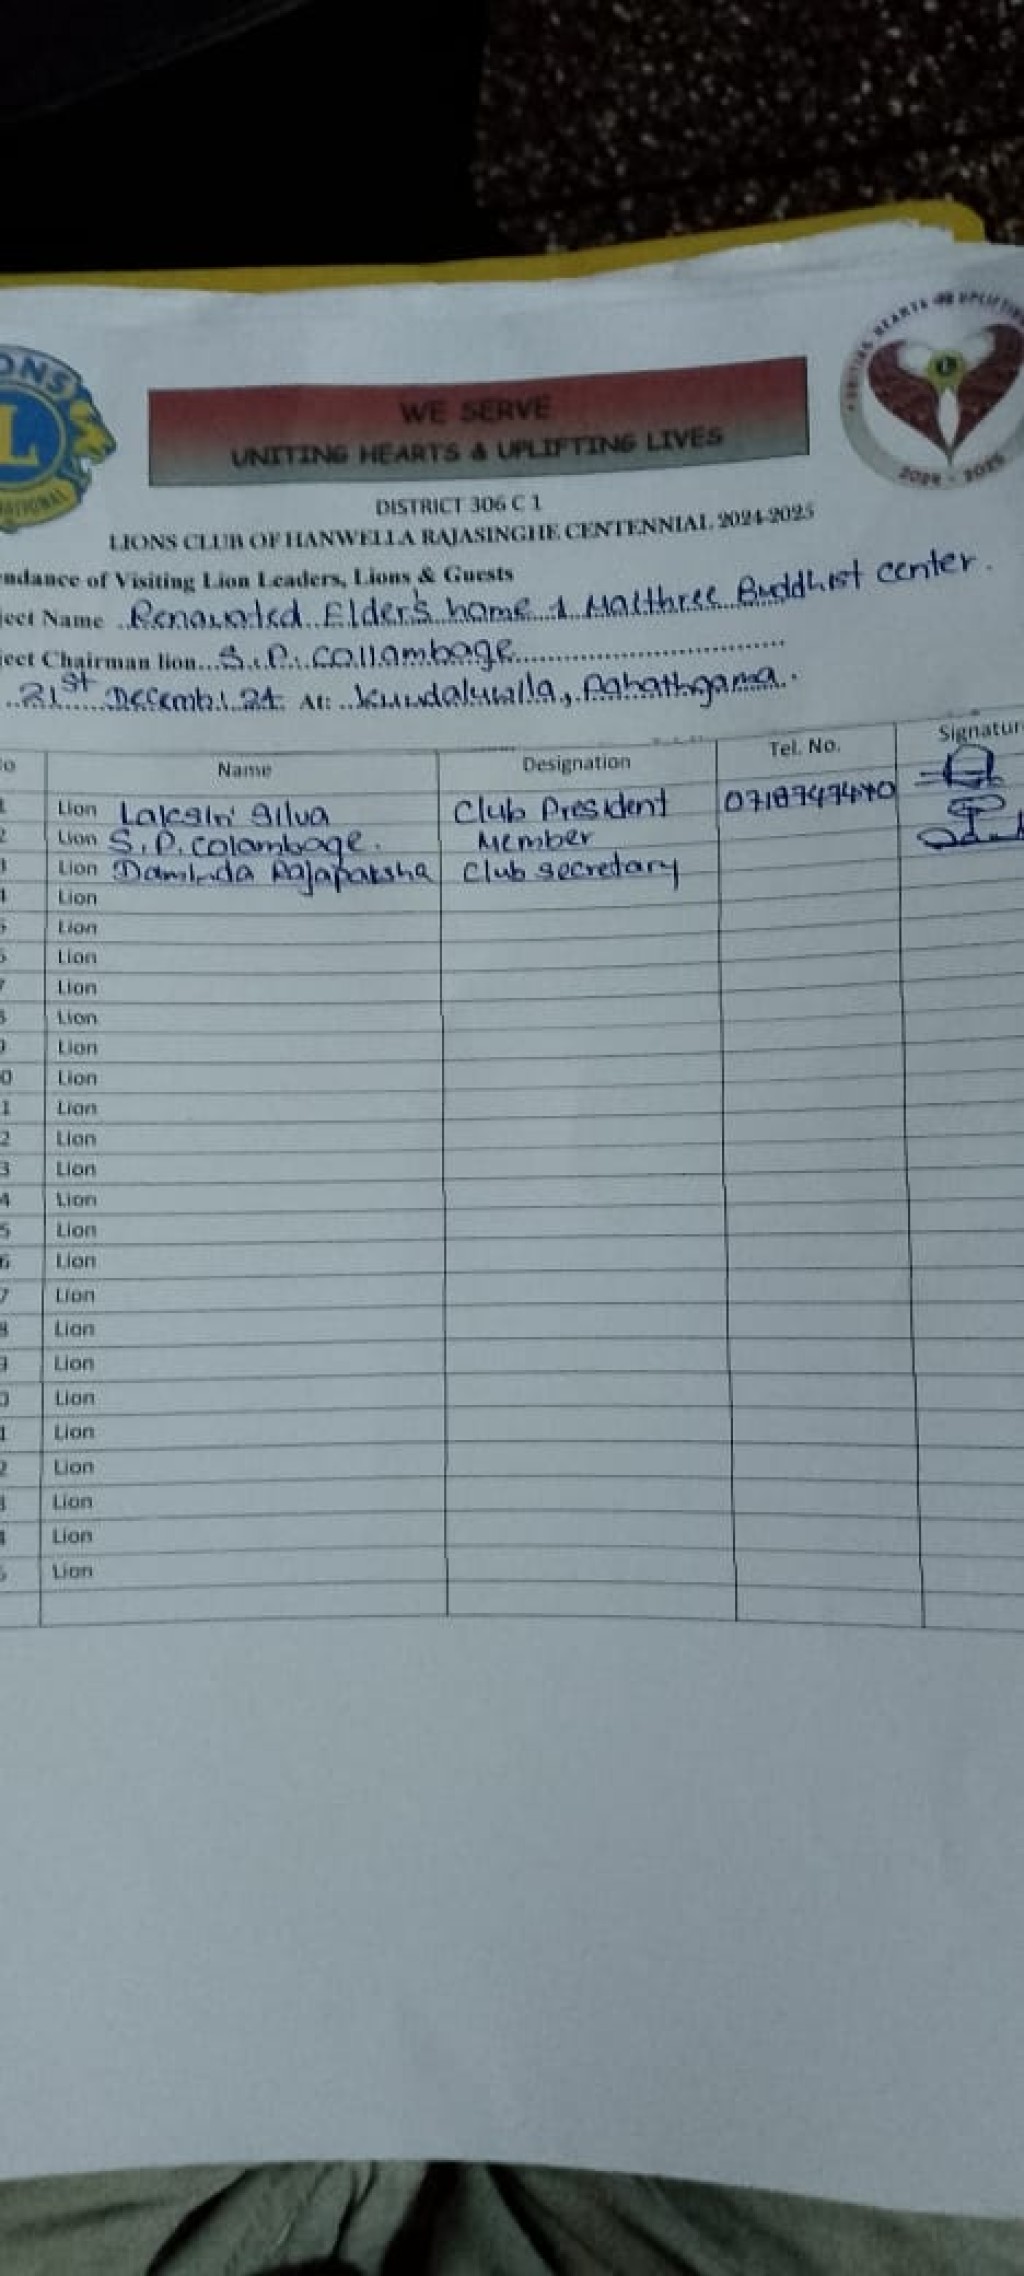 ONS
L
NATIONAL
UNITING HEARTS AND UPLIFTING
2024 - 2025
WE SERVE
UNITING HEARTS & UPLIFTING LIVES
DISTRICT 306 C 1
LIONS CLUB OF HANWELLA RAJASINGHE CENTENNIAL 2024-2025
ndance of Visiting Lion Leaders, Lions & Guests
ject Name Renowated Elder's home & Maithree Buddhist center.
ject Chairman lion S.P. Collambage
21st Decemb. 24 At: Kundaluwilla, Pahathgama.
o Name Designation Tel. No. Signatur
1 Lion Lakshi Silva Club President
2 Lion S.P. Colambage. Member
3 Lion Daminda Rajapaksha Club secretary
4 Lion
5 Lion
6 Lion
7 Lion
8 Lion
9 Lion
0 Lion
1 Lion
2 Lion
3 Lion
4 Lion
5 Lion
6 Lion
7 Lion
8 Lion
9 Lion
0 Lion
1 Lion
2 Lion
3 Lion
4 Lion
5 Lion